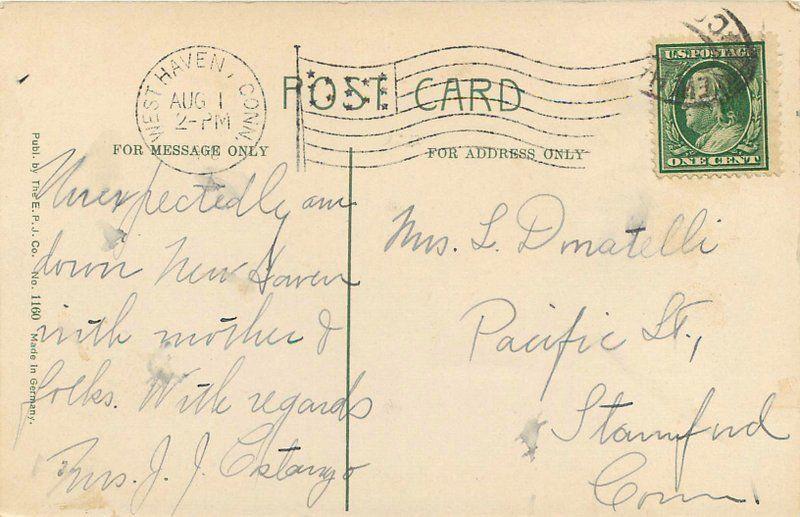 WEST HAVEN, CONN.
AUG 1
2-PM
POST CARD
U.S. POSTAGE
ONE CENT
FOR MESSAGE ONLY
FOR ADDRESS ONLY
Publ. by The E. P. J. Co. No. 1160 Made in Germany.
Unexpectedly am
down New Haven
with mother &
folks. With regards
Mrs. J. J.
Mrs. L. Donatelli
Pacific St.,
Stamford
Conn.